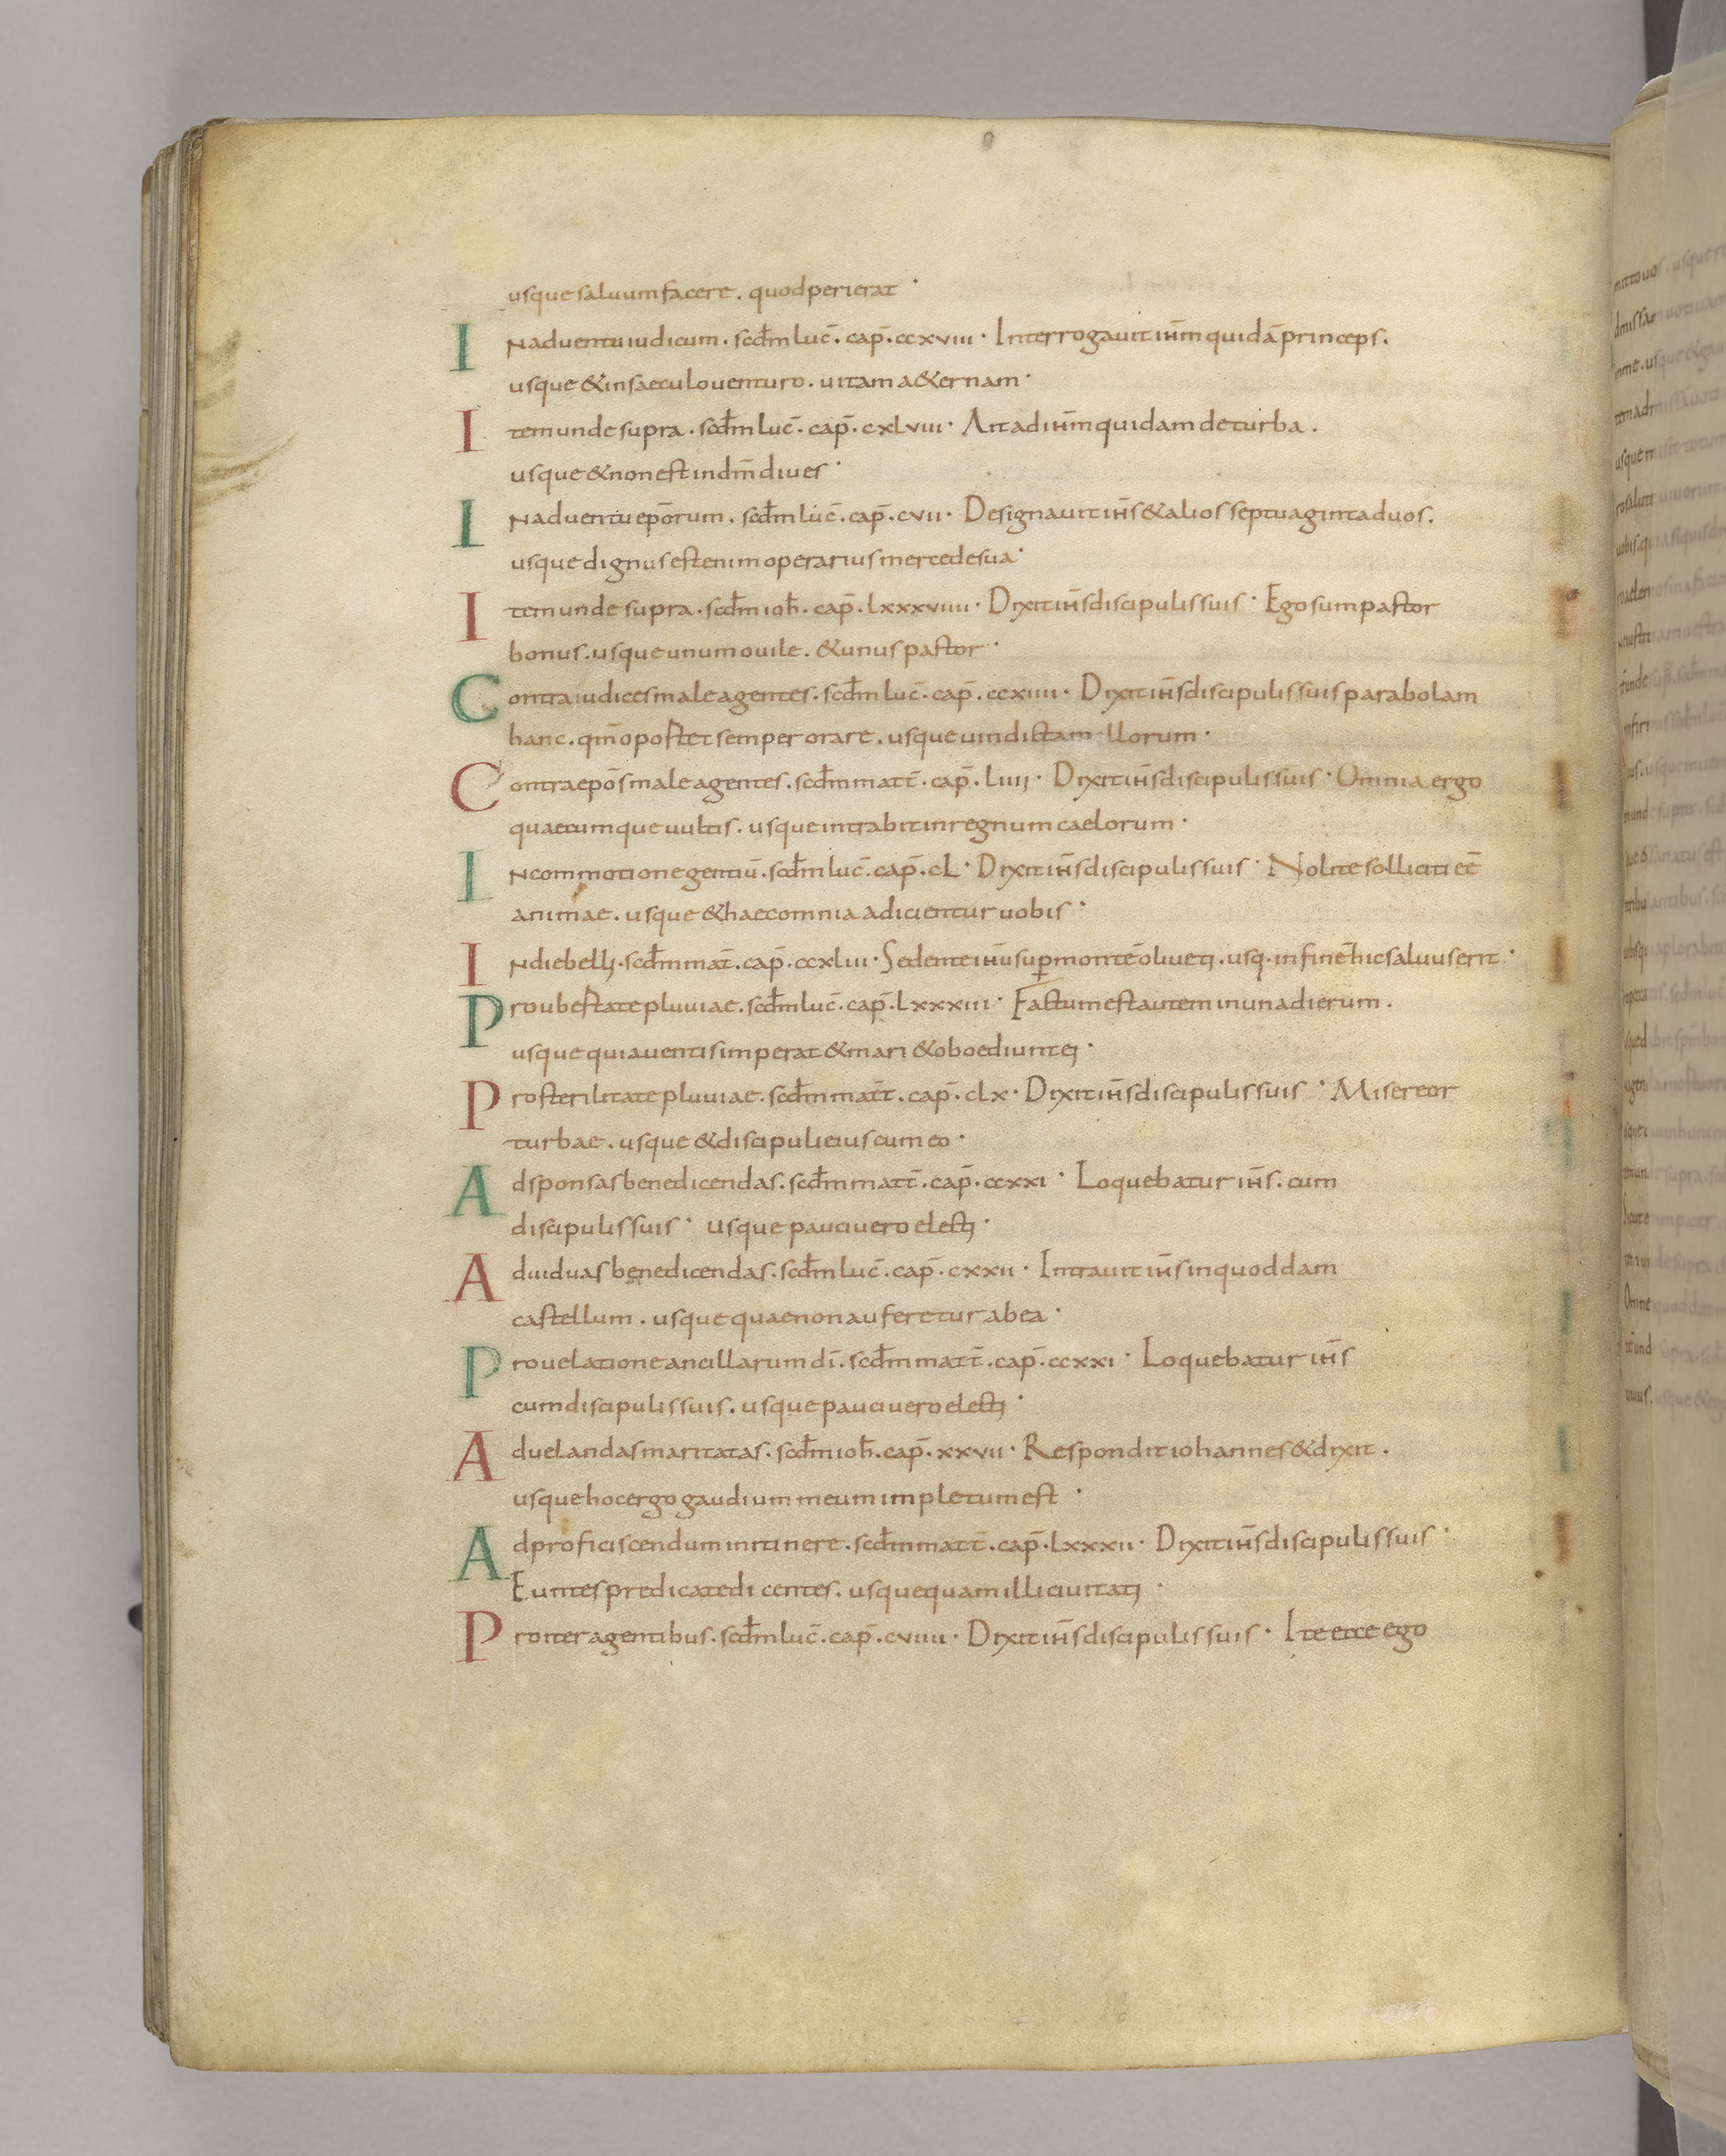 usque saluum facere . quod perierat ·
In aduentu iudicum . scdm luc̄ . cap̄ . ccxviii · Interrogauit ihm̄ quidā princeps .
usque & in saeculo uenturo . uitam a&ernam ·
Item unde supra . scdm luc̄ . cap̄ . cxlviii · Ait ad ihm̄ quidam de turba .
usque & non est in dm̄ diues ·
In aduentu ep̄orum . scdm luc̄ . cap̄ . cvii · Designauit ih̄s & alios septuaginta duos .
usque dignus est enim operarius mercede sua ·
Item unde supra . scdm ioh̄ . cap̄ . lxxxviiii · Dixit ih̄s discipulis suis · Ego sum pastor
bonus . usque unum ouile . & unus pastor ·
Contra iudices male agentes . scdm luc̄ . cap̄ . ccxiiii · Dixit ih̄s discipulis suis parabolam
hanc . qm̄ oportet semper orare . usque uindictam illorum ·
Contra ep̄os male agentes . scdm matt̄ . cap̄ . liiij · Dixit ih̄s discipulis suis · Omnia ergo
quaecumque uultis . usque intrabit in regnum caelorum ·
In commotione gentiū . scdm luc̄ . cap̄ . cl · Dixit ih̄s discipulis suis · Nolite solliciti eē
animae . usque & haec omnia adicientur uobis ·
In die belli . scdm mat̄ . cap̄ . ccxliii · Sedente ihū sup̄ montē oliueti . usq· in finē hic saluus erit ·
Pro ubertate pluuiae . scdm luc̄ . cap̄ . lxxxiii · Factum est autem in una dierum .
usque quia uentis imperat & mari & oboediunt ei ·
Pro sterilitate pluuiae . scdm matt̄ . cap̄ . clx · Dixit ih̄s discipulis suis · Misereor
turbae . usque & discipuli eius cum eo ·
Ad sponsas benedicendas . scdm matt̄ . cap̄ . ccxxi · Loquebatur ih̄s . cum
discipulis suis · usque pauci uero electi ·
Ad uiduas benedicendas . scdm luc̄ . cap̄ . cxxii · Intrauit ih̄s in quoddam
castellum . usque quae non auferetur ab ea ·
Pro uelatione ancillarum dī . scdm matt̄ . cap̄ . ccxxi · Loquebatur ih̄s
cum discipulis suis . usque pauci uero electi ·
Ad uelandas maritatas . scdm ioh̄ . cap̄ . xxvii · Respondit iohannes & dixit .
usque hoc ergo gaudium meum impletum est ·
Ad proficiscendum in itinere . scdm matt̄ . cap̄ . lxxxii · Dixit ih̄s discipulis suis ·
Euntes predicate dicentes . usque quam illi ciuitati ·
Pro iter agentibus . scdm luc̄ . cap̄ . cviiii · Dixit ih̄s discipulis suis · Ite ecce ego